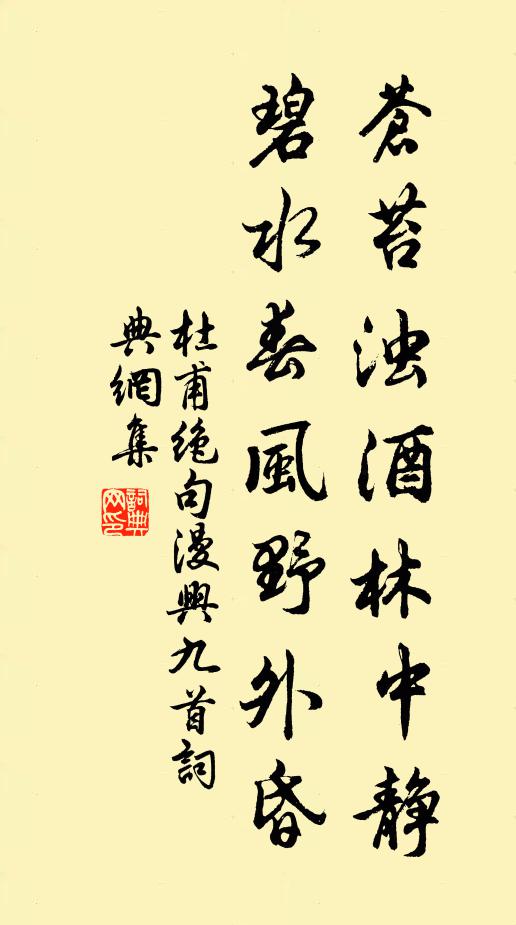 蒼苔浊酒林中静
碧水春風野外昏
杜甫绝句漫興九首詞
典網集
詞典
网印